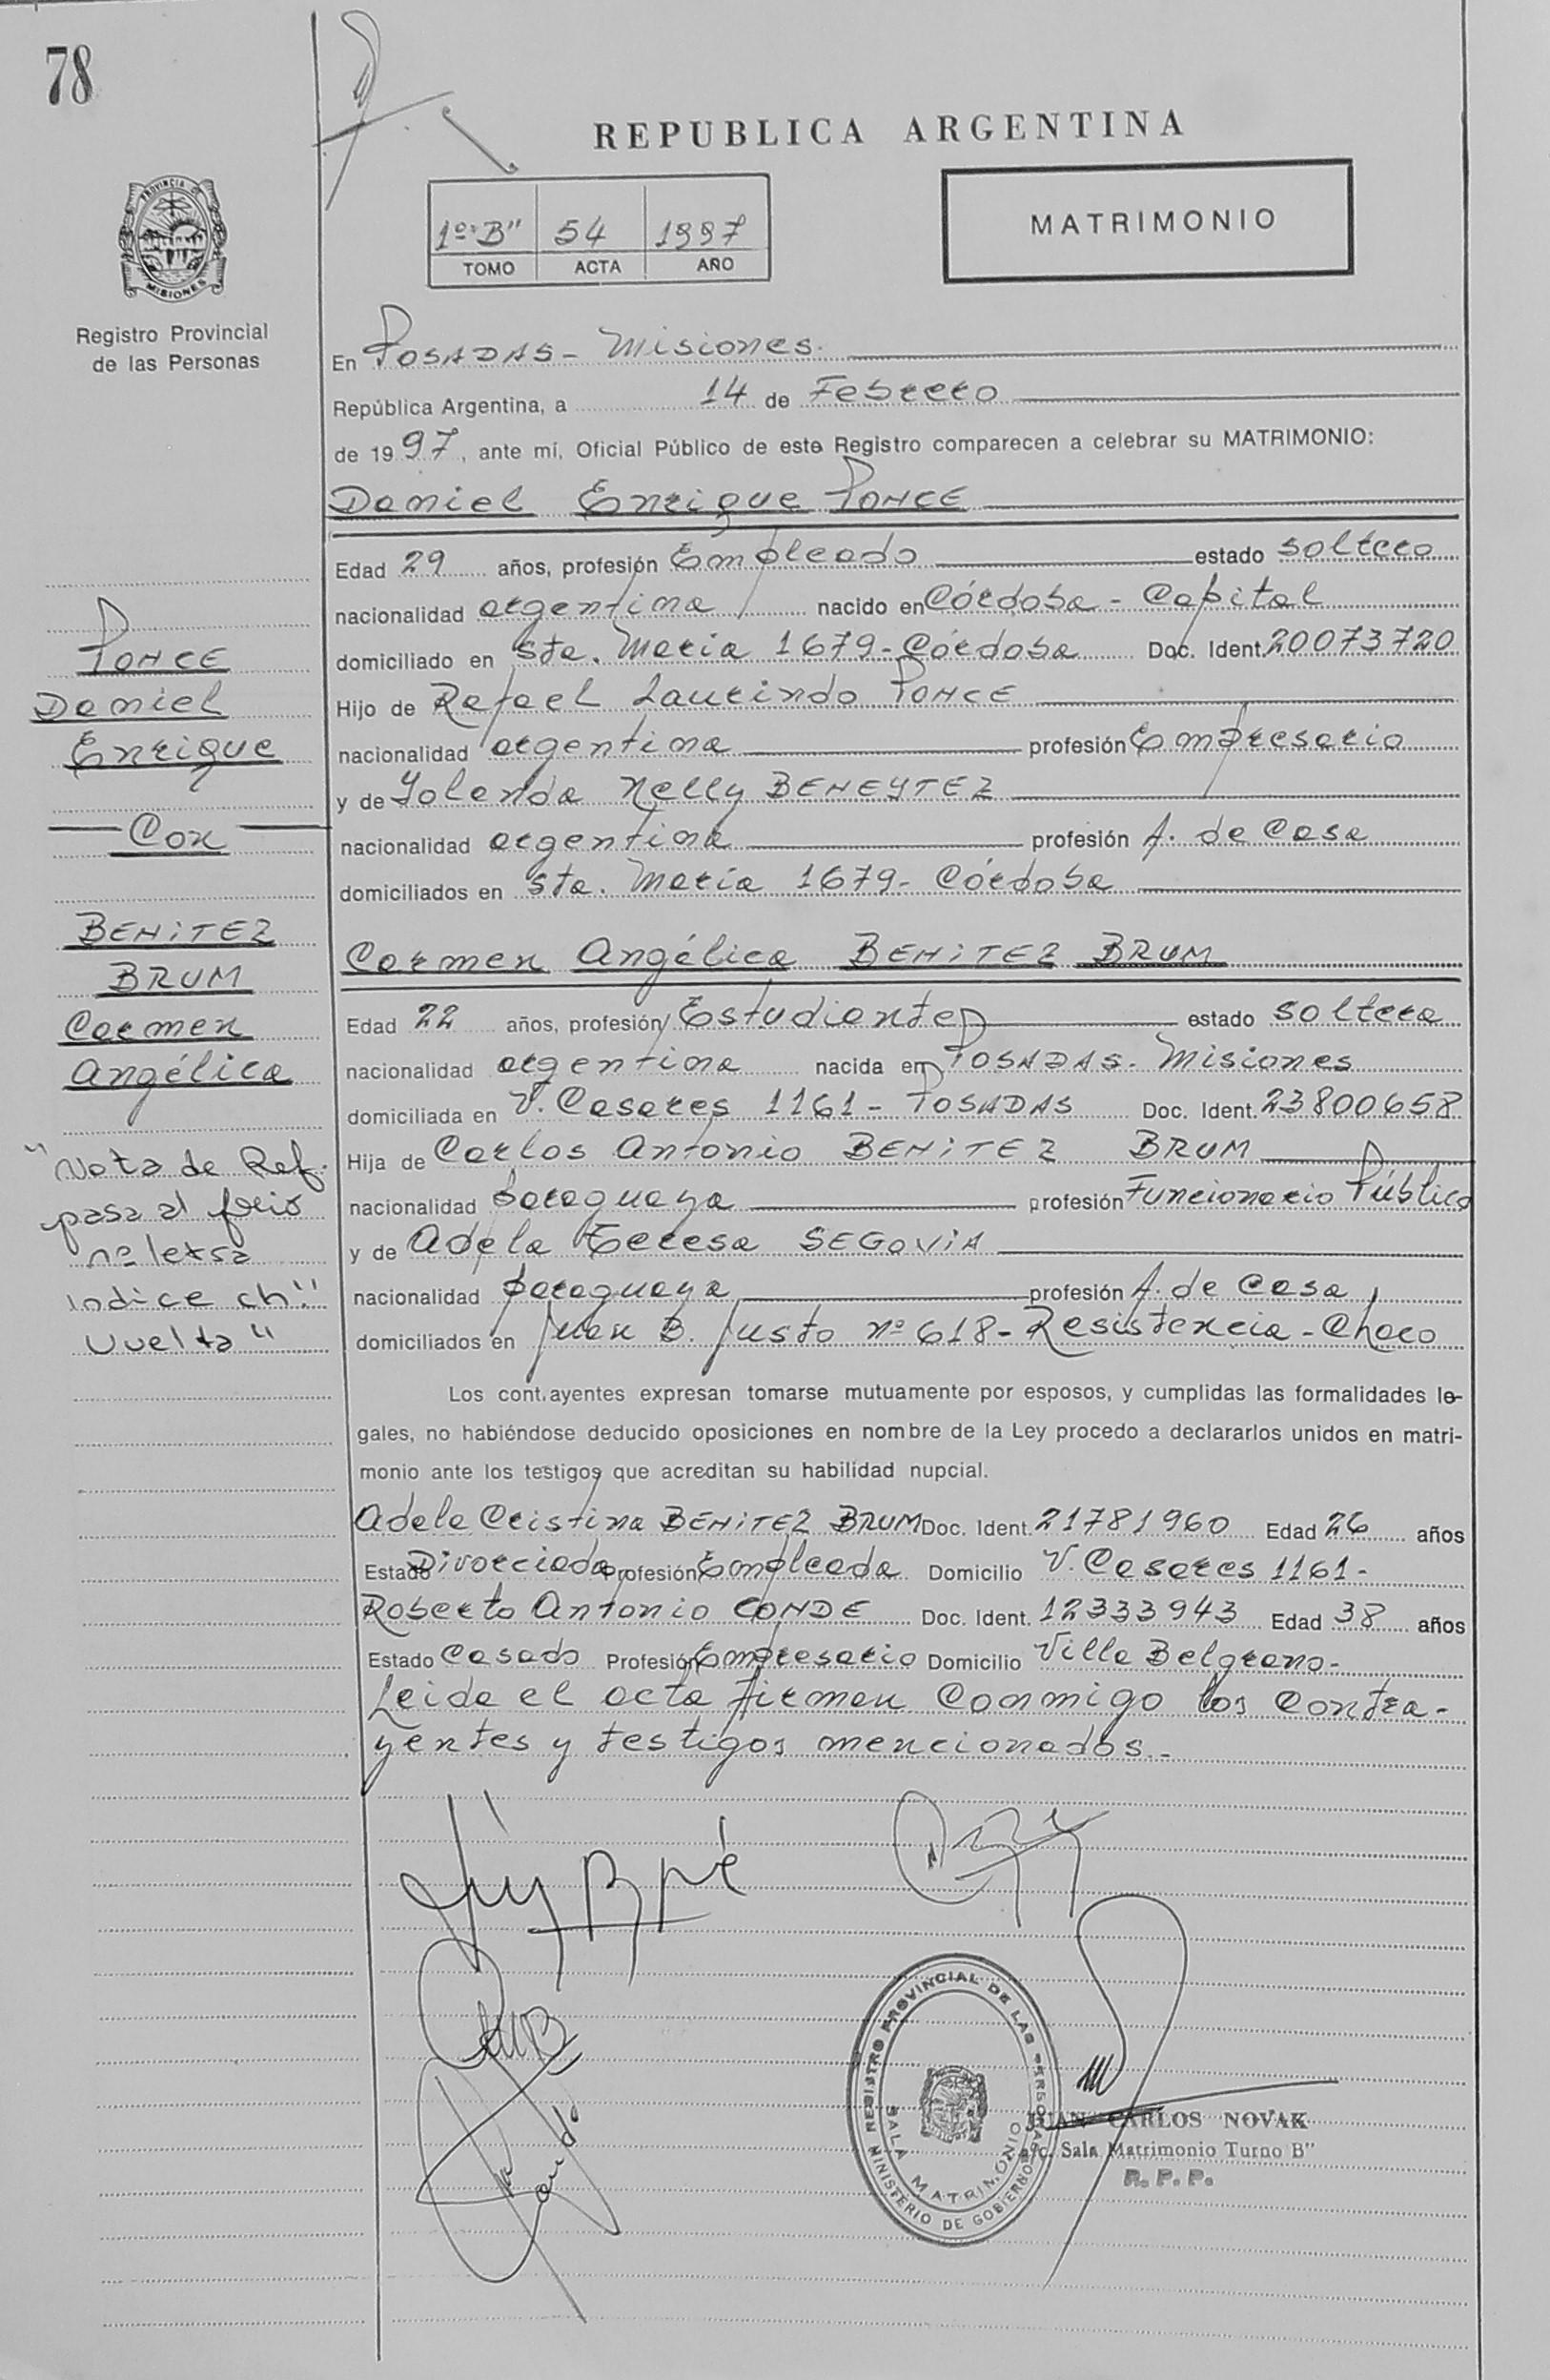 78
REPUBLICA ARGENTINA
PROVINCIA DE
MISIONES
Registro Provincial
de las Personas
1º "B" 54 1997
TOMO ACTA AÑO
MATRIMONIO
En POSADAS - Misiones.
República Argentina, a 14 de Febrero
de 1997, ante mí, Oficial Público de este Registro comparecen a celebrar su MATRIMONIO:
Daniel Enrique PONCE
Edad 29 años, profesión Empleado estado soltero
nacionalidad argentina nacido en Córdoba - Capital
domiciliado en Sta. María 1679 - Córdoba Doc. Ident. 20073720
Hijo de Rafael Laurindo PONCE
nacionalidad argentina profesión Empresario
y de Yolanda Nelly BENEYTEZ
nacionalidad argentina profesión A. de Casa
domiciliados en Sta. María 1679 - Córdoba
Carmen Angélica BENITEZ BRUM
Edad 22 años, profesión Estudiante estado soltera
nacionalidad argentina nacida en POSADAS - Misiones
domiciliada en V. Casares 1161 - POSADAS Doc. Ident. 23800658
Hija de Carlos Antonio BENITEZ BRUM
nacionalidad paraguaya profesión Funcionario Público
y de Adela Teresa SEGOVIA
nacionalidad paraguaya profesión A. de Casa
domiciliados en Juan B. Justo nº 618 - Resistencia - Chaco
Los contrayentes expresan tomarse mutuamente por esposos, y cumplidas las formalidades le-
gales, no habiéndose deducido oposiciones en nombre de la Ley procedo a declararlos unidos en matri-
monio ante los testigos que acreditan su habilidad nupcial.
Adela Cristina BENITEZ BRUM Doc. Ident. 21781960 Edad 26 años
Estado Divorciada Profesión Empleada Domicilio V. Casares 1161 -
Roberto Antonio CONDE Doc. Ident. 12333943 Edad 38 años
Estado Casado Profesión Empresario Domicilio Villa Belgrano -
Leída el acta firman conmigo los contra-
yentes y testigos mencionados. -
PONCE
Daniel
Enrique
Con
BENITEZ
BRUM
Carmen
Angélica
"Nota de Ref.
pasa al folio
nº letra
Indice ch"
Vuelta"
REGISTRO PROVINCIAL DE LAS PERSONAS
MINISTERIO DE GOBIERNO
SALA MATRIMONIO
JUAN CARLOS NOVAK
a/c. Sala Matrimonio Turno B"
R. P. P.